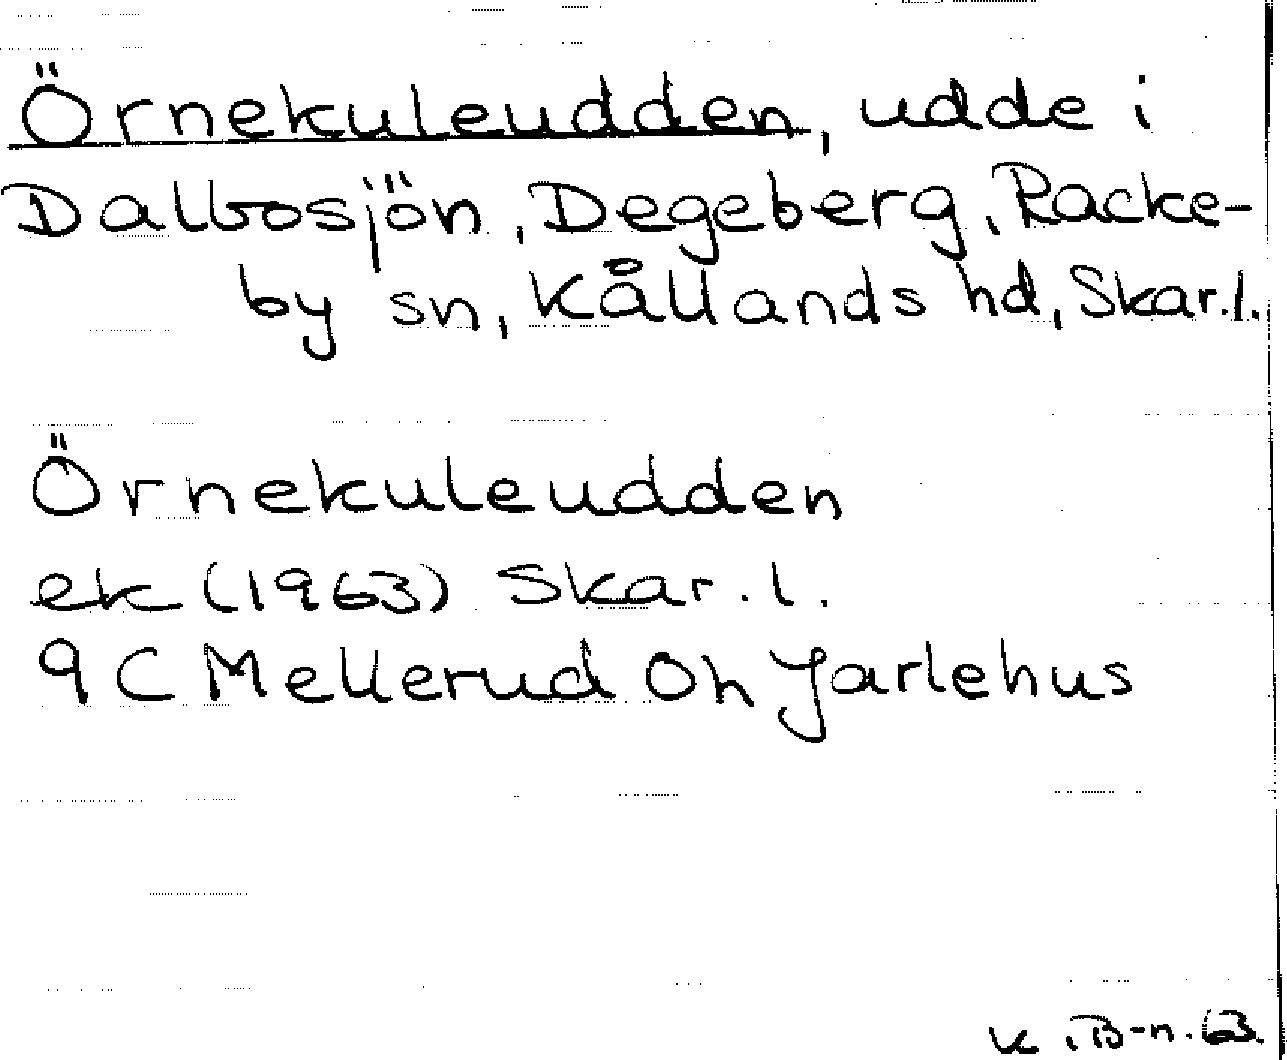 Örnekuleudden, udde i
Dalbosjön, Degeberg, Racke-
by sn, Kållands hd, Skar.l.
Örnekuleudden
ek (1963) Skar.l.
9C Mellerud Öh Jarlehus
K i B-n. 63.